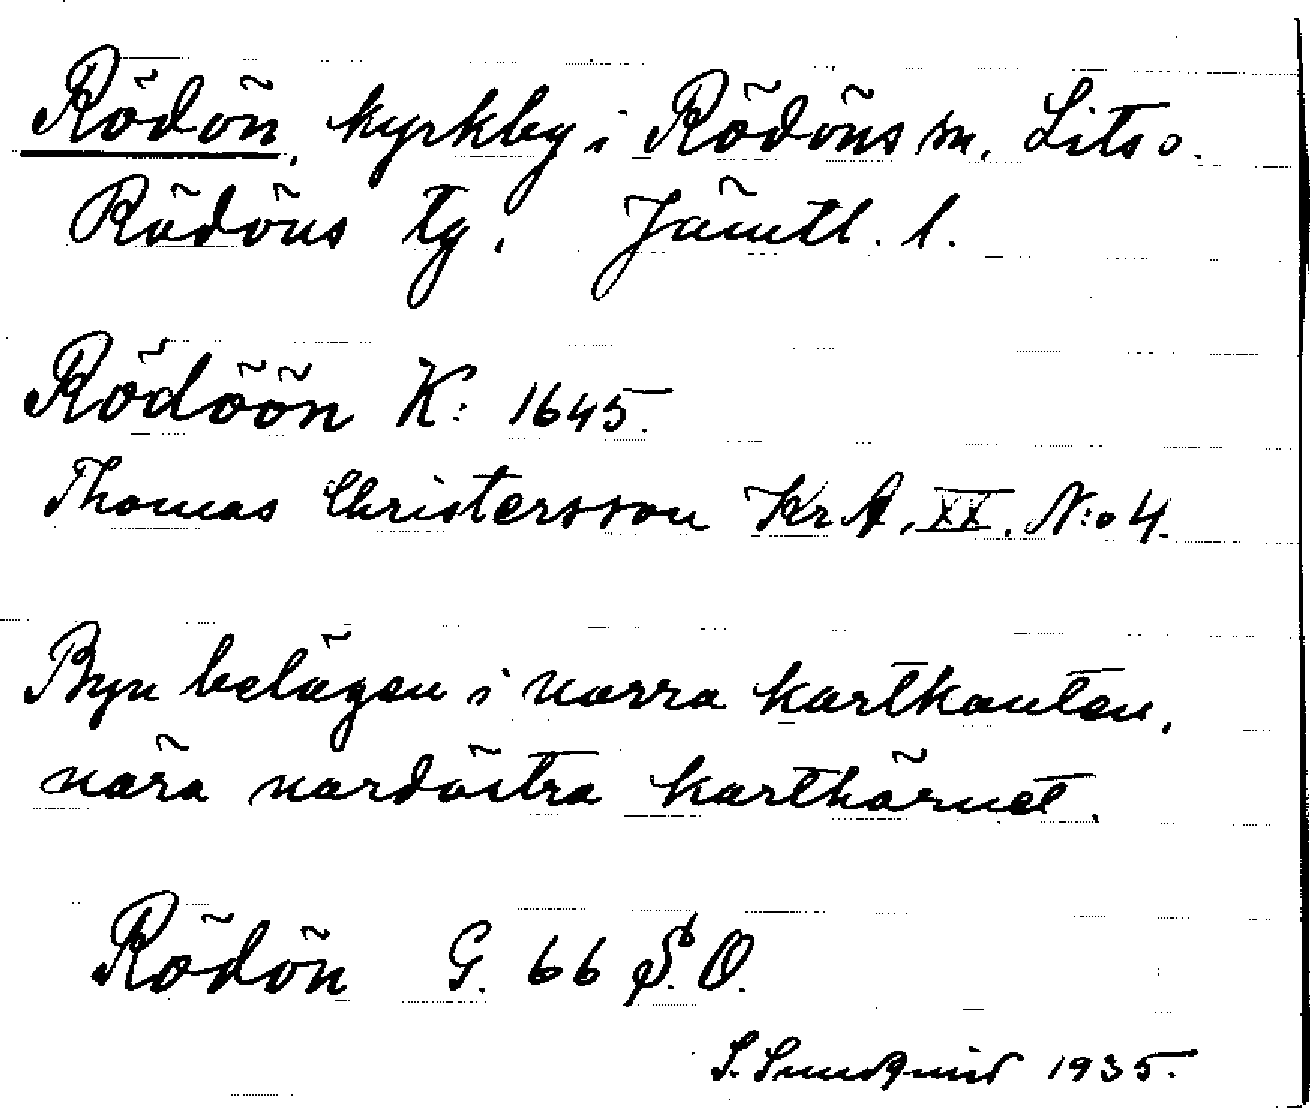 Rödön, kyrkby i Rödöns sn. Lits o.
Rödöns tg. Jämtl. l.
Rödöön K: 1645.
Thomas Christersson KrA, XX. N:o 4.
Byn belägen i norra kartkanten,
nära nordöstra karthörnet.
Rödön G. 66 S.O.
S. Sundquist 1935.